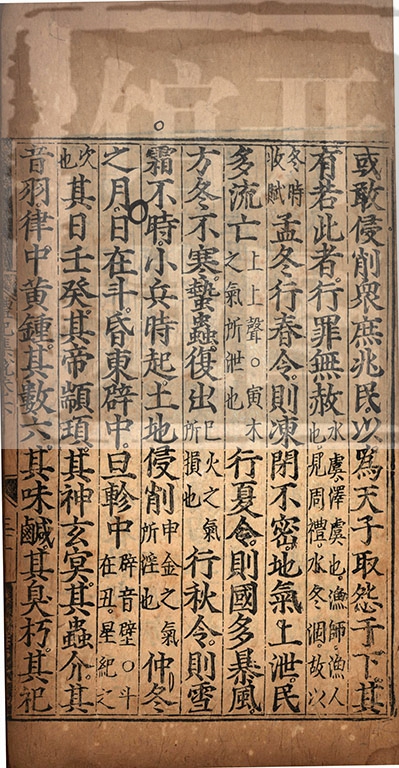 或敢侵削衆庶兆民以爲天子取怨于下其
有若此者行罪無赦水虞澤虞也漁師漁人也見周禮水冬涸故以
冬時收賦孟冬行春令則凍閉不密地氣上泄民
多流亡上上聲○寅木之氣所泄也行夏令則國多暴風
方冬不寒蟄蟲復出巳火之氣所損也行秋令則雪
霜不時小兵時起土地侵削申金之氣所淫也仲冬
之月日在斗昏東辟中旦軫中辟音壁○斗在丑星紀之
次也其日壬癸其帝顓頊其神玄冥其蟲介其
音羽律中黃鍾其數六其味鹹其臭朽其祀